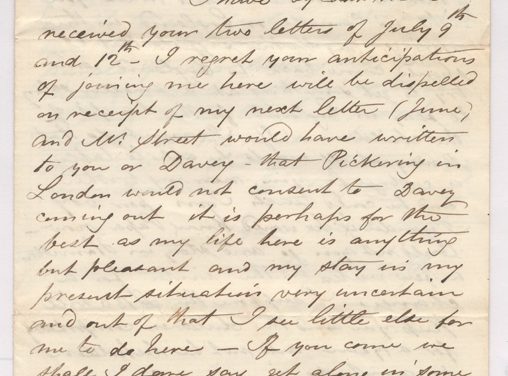 I have by
received your two letters of July 9th
and 12th - I regret your anticipations
of joining me here will be dispelled
on receipt of my next letter (June)
and Mr. Street would have written
to you or Davey - that Pickering in
London would not consent to Davey
coming out it is perhaps for the
best as my life here is anything
but pleasant and my stay in my
present situation very uncertain
and out of that I see little else for
me to do here - If you come we
shall I dare say get along in some